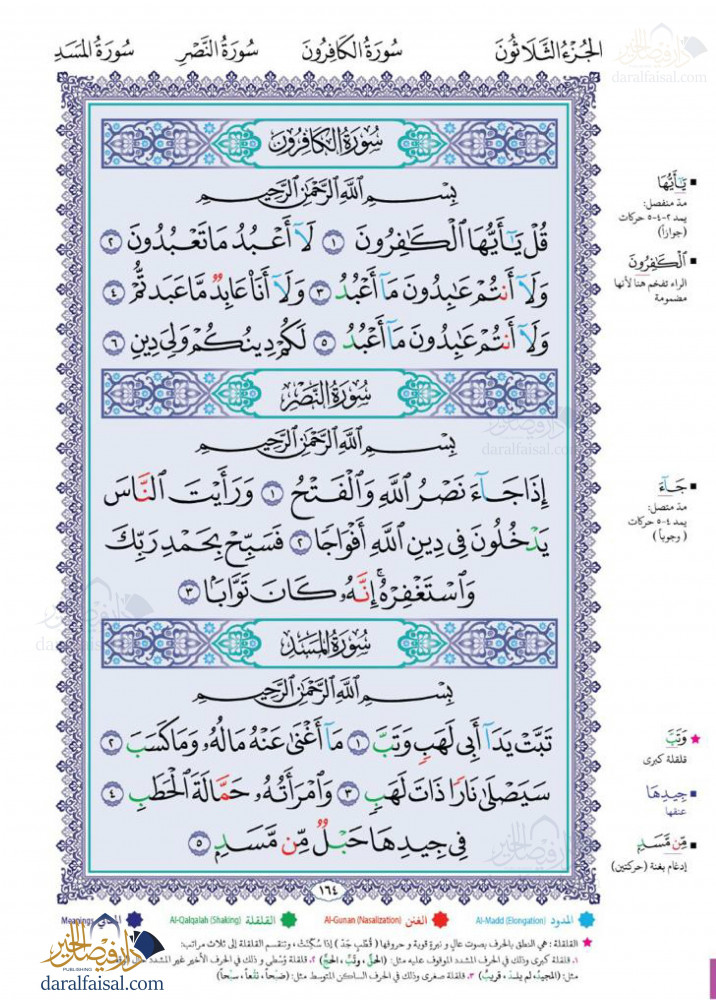 الجُزْءُ الثَّلَاثُونَ سُورَةُ الكَافِرُونَ سُورَةُ النَّصْرِ سُورَةُ المَسَدِ
دار فيصل الخير
daralfaisal.com
سُورَةُ الكَافِرُونَ
بِسْمِ اللَّهِ الرَّحْمَٰنِ الرَّحِيمِ
قُلْ يَٰٓأَيُّهَا ٱلْكَٰفِرُونَ ١ لَآ أَعْبُدُ مَا تَعْبُدُونَ ٢
وَلَآ أَنتُمْ عَٰبِدُونَ مَآ أَعْبُدُ ٣ وَلَآ أَنَا۠ عَابِدٌ مَّا عَبَدتُّمْ ٤
وَلَآ أَنتُمْ عَٰبِدُونَ مَآ أَعْبُدُ ٥ لَكُمْ دِينُكُمْ وَلِىَ دِينِ ٦
سُورَةُ النَّصْرِ
بِسْمِ اللَّهِ الرَّحْمَٰنِ الرَّحِيمِ
إِذَا جَآءَ نَصْرُ ٱللَّهِ وَٱلْفَتْحُ ١ وَرَأَيْتَ ٱلنَّاسَ
يَدْخُلُونَ فِى دِينِ ٱللَّهِ أَفْوَاجًا ٢ فَسَبِّحْ بِحَمْدِ رَبِّكَ
وَٱسْتَغْفِرْهُ ۚ إِنَّهُۥ كَانَ تَوَّابًۢا ٣
سُورَةُ المَسَدِ
بِسْمِ اللَّهِ الرَّحْمَٰنِ الرَّحِيمِ
تَبَّتْ يَدَآ أَبِى لَهَبٍ وَتَبَّ ١ مَآ أَغْنَىٰ عَنْهُ مَالُهُۥ وَمَا كَسَبَ ٢
سَيَصْلَىٰ نَارًا ذَاتَ لَهَبٍ ٣ وَٱمْرَأَتُهُۥ حَمَّالَةَ ٱلْحَطَبِ ٤
فِى جِيدِهَا حَبْلٌ مِّن مَّسَدٍۭ ٥
١٦٤
يَٰٓأَيُّهَا
مدّ منفصل:
يمد ٢-٤-٥ حركات
(جوازاً)
ٱلْكَٰفِرُونَ
الراء تفخم هنا لأنها
مضمومة
جَآءَ
مدّ متصل:
يمد ٤-٥ حركات
(وجوباً)
وَتَبَّ
قلقلة كبرى
جِيدِهَا
عنقها
مِّن مَّسَدٍ
إدغام بغنة (حركتين)
المدود Al-Madd (Elongation) الغنن Al-Gunan (Nasalization) القلقلة Al-Qalqalah (Shaking) المعاني Meanings
القلقلة: هي النطق بالحرف بصوت عالٍ و نبرةٍ قوية و حروفها (قُطْبُ جَدٍّ) إذا سُكِّنَتْ، وتنقسم القلقلة إلى ثلاث مراتب:
١. قلقلة كبرى وذلك في الحرف المشدد الموقوف عليه مثل: (الحقّ، وتبّ، الحجّ) ٢. قلقلة وُسْطى و ذلك في الحرف الأخير غير المشدد حال
مثل: (المجيدُ، لم يلدْ، قريبٌ) ٣. قلقلة صغرى وذلك في الحرف الساكن المتوسط مثل: (ضَبْحاً، نَقْعاً، سَبْحاً)
دار فيصل الخير
PUBLISHING
daralfaisal.com